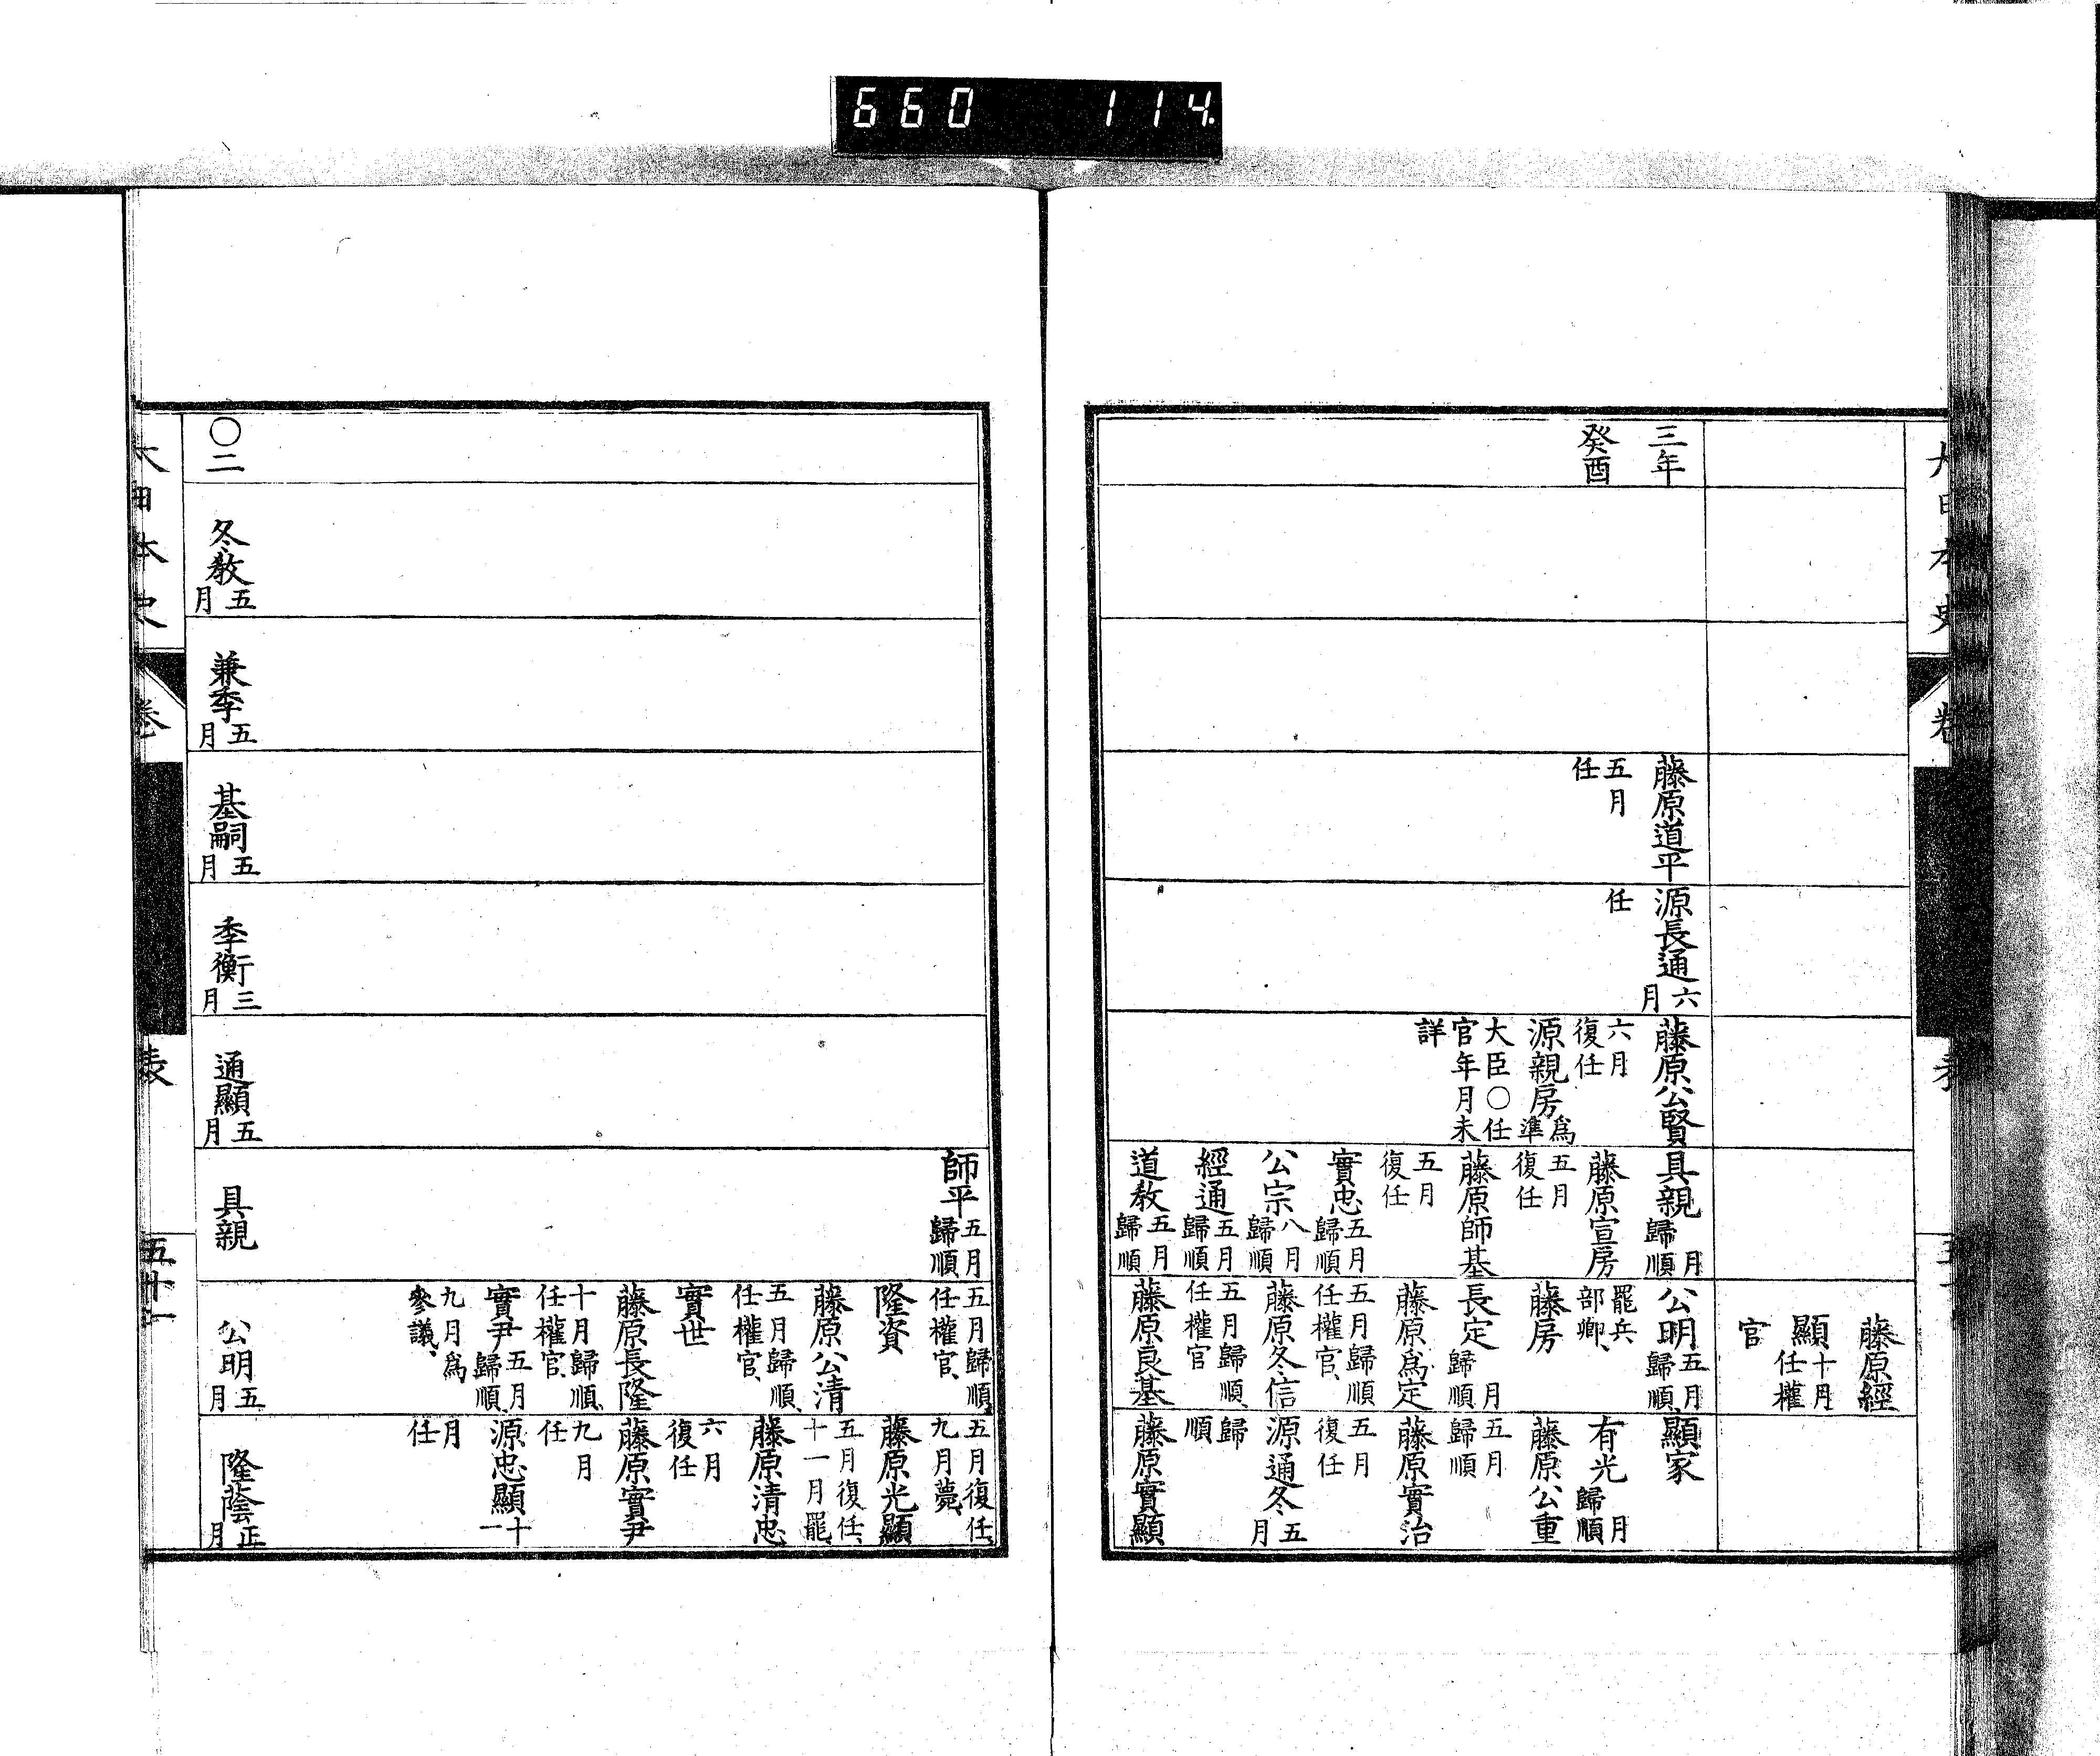 660 114.
藤原經
顯十月任權
官
三年
癸酉
藤原道平
五月
任
源長通六月
任
藤原公賢
六月
復任
源親房爲準
大臣〇任
官年月未
詳
具親 月歸順
藤原宣房
五月
復任
藤原師基
五月
復任
實忠五月歸順
公宗八月歸順
經通五月歸順
道敎五月歸順
公明五月歸順、
罷兵
部卿、
藤房
長定 月歸順
藤原爲定
五月歸順
任權官、
藤原冬信
五月歸順、
任權官
藤原良基
顯家
有光 月歸順
藤原公重
五月
歸順
藤原實治
五月
復任
源通冬五月
歸
順
藤原實顯
師平五月歸順
五月歸順、
任權官、
隆資
藤原公清
五月歸順、
任權官、
實世
藤原長隆
十月歸順、
任權官、
實尹五月歸順、
九月爲
參議、
五月復任、
九月薨、
藤原光顯
五月復任、
十一月罷、
藤原清忠
六月
復任
藤原實尹
九月
任
源忠顯十一
月
任
〇二
冬敎五月
兼季五月
基嗣五月
季衡三月
通顯五月
具親
公明五月
隆蔭正月
大日本史
卷
表